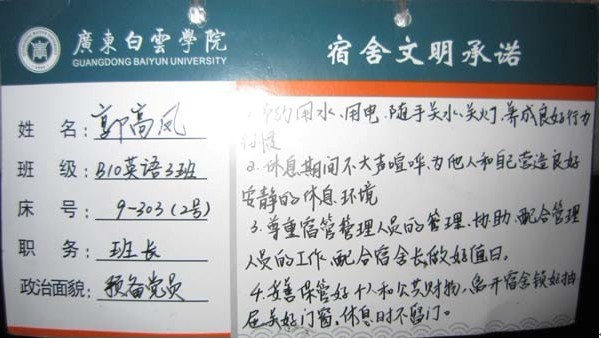 廣東白雲學院
GUANGDONG BAIYUN UNIVERSITY
姓 名: 郭高风
班 级: B10英语3班
床 号: 9-303(2号)
职 务: 班长
政治面貌: 预备党员
宿舍文明承诺
约用水、用电、随手关水、关灯、养成良好行为
习惯
2.休息期间不大声喧哗,为他人和自己营造良好
安静的休息环境
3.尊重宿管管理人员的管理、协助、配合管理
人员的工作、配合宿舍长做好值日。
4.妥善保管好个人和公共财物,离开宿舍锁好抽
屉关好门窗,休息时不窜门。